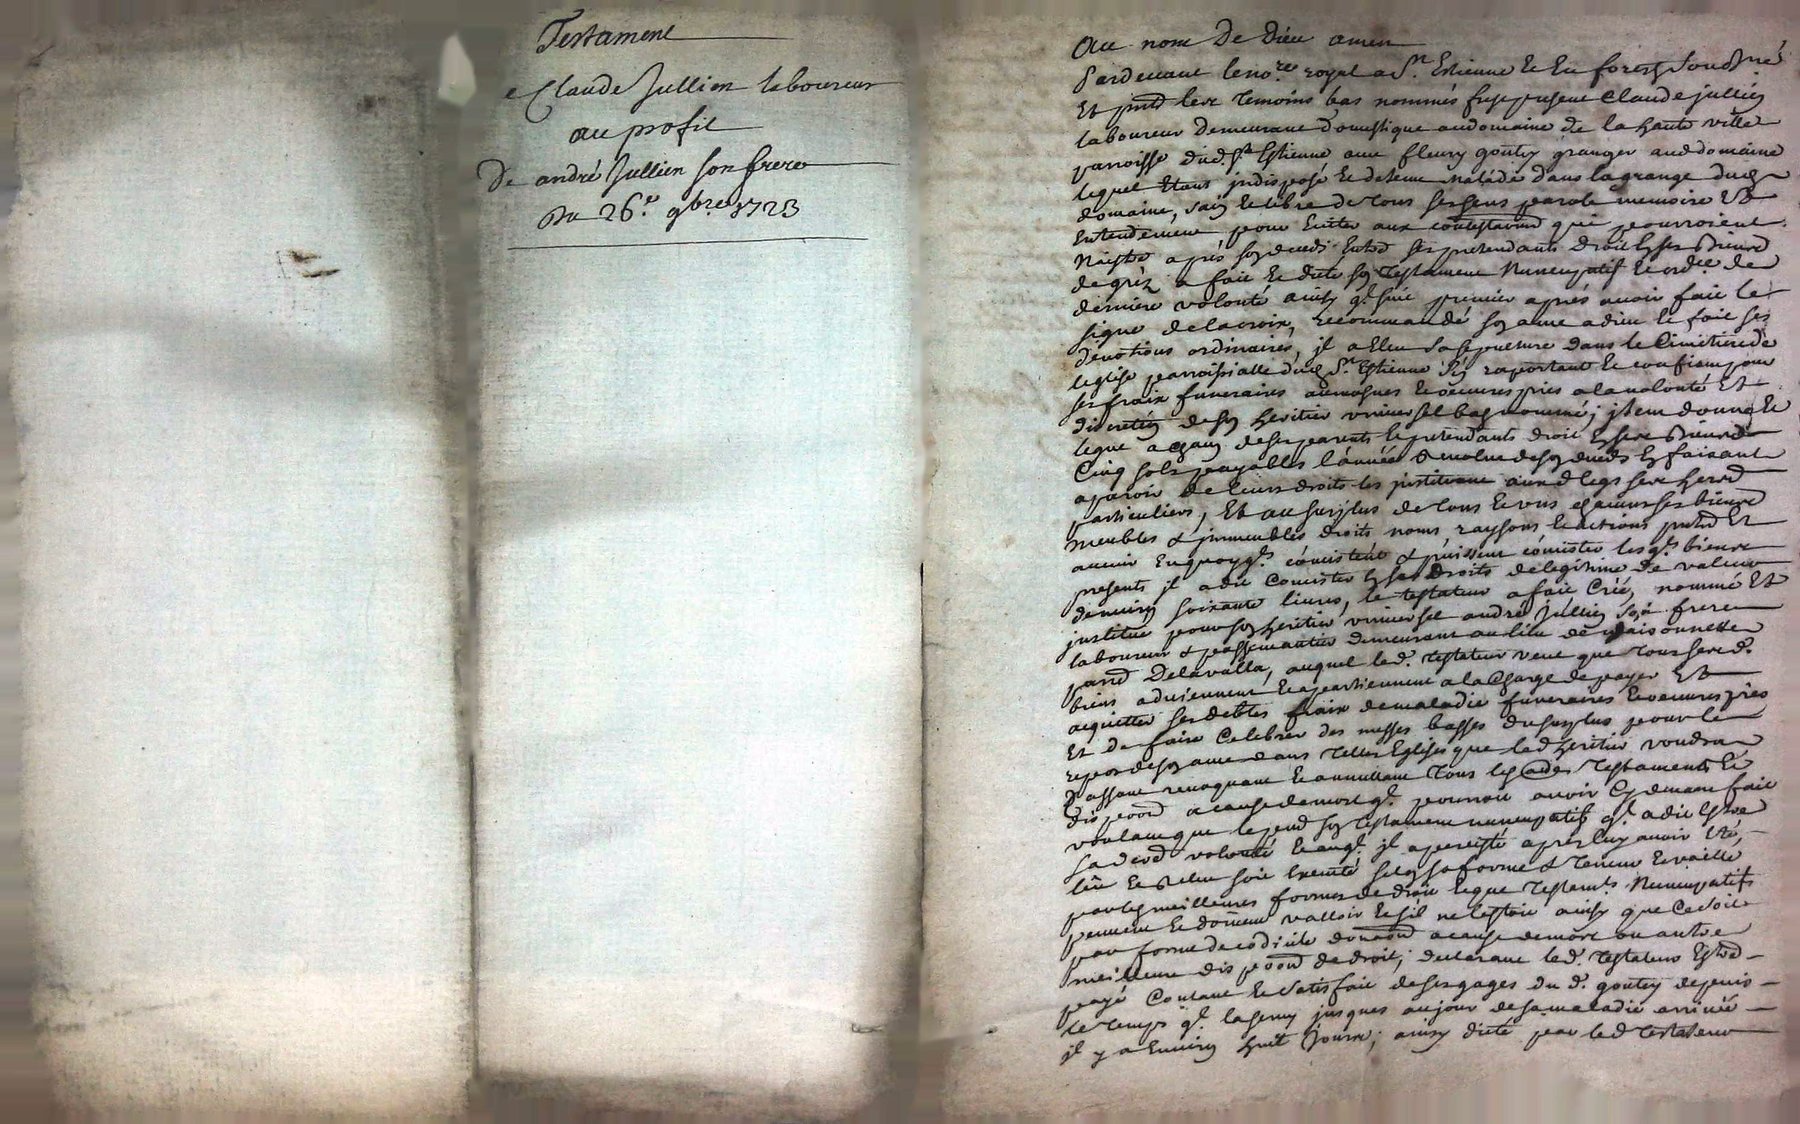 Testament
Claude Jullien laboureur
au profit
De andré Jullien son frere
Du 26.e 9bre 1723
Au nom De Dieu amen
Pardevant le no.re royal a St. Estienne En forest soussigné
Et les temoins bas nommés Claude jullien
laboureur demeurant domestique au domaine de la haute ville
parroisse dud. St Estienne fleury goutey granger aud domaine
lequel Etant jndisposé Et detenu malade dans la grange dud
domaine, sain Et libre de tous ses sens parole memoire Et
Entendement pour Eviter aux contestaond qui pourroient
Naistre aprés son deceds Entre ses pretendants droit En ses biens
a fait Et dicté son Testament Nuncupatif Et ordce de
derniere volonté ainsy q.l suit premier aprés avoir fait le
signe de la croix, recommandé son ame a dieu Et fait ses
devotions ordinaires, jl a Eleu sa sepulture dans le Cimitiere de
leglise parroissialle dud St. Estienne raportant Et confiant pour
ses fraix funeraires aumosnes Et oeuvres pies a la volonté Et
discretion de son heritier universel bas nommé; jtem donne Et
legue a chacun de ses parents Et pretendants droit En ses biens
Cinq sols payables l'année revolue de son deceds En faisant
aparoir de leurs droits les jnstituant auxd legs ses herd
particuliers, Et au surplus de tous Et uns chacuns ses biens
meubles & jmmeubles droits noms raysons Et actions Et
avenir En quoy q.ls consistent & puissent consister lesq.ls biens
presents jl a dit Consister En ses droits de legitime de valeur
denviron soixante livres, le testateur a fait Créé, nommé Et
jnstitué pour son heritier universel andré jullien son frere
laboureur & passemantier demeurant au lieu de maisonnette
Delavalla, auquel led. testateur veut que tous sesd.
biens adviennent Et apartiennent a la Charge de payer Et
acquitter ses debtes fraix de maladie funeraires Et oeuvres pies
Et de faire Celebrer des messes basses du surplus pour le
repos de son ame dans telles Eglises que led heritier voudra
Cassant revoquant Et annullant tous Testaments Et
dis poond a cause de mort q.l pourroit avoir Cy devant fait
voulant que le pnd son Testament nuncupatif q.l a dit Estre
sa volonté Et auq.l jl a persisté aprés luy avoir Eté,
leu Et releu soit Executé selon sa forme & teneur Et vaille
par les meilleures formes de droit Et que Testamts. Nuncupatifs
peuvent Et doivent valloir Et s'il ne lestoit ainsy que Ce soit
par forme de codicile donaond a cause de mort ou autre
meilleure dis poond de droit; declarant led. testateur Estre
payé Contant Et satisfait de ses gages du d. goutey depuis
le temps q.l la servy jusques au jour de sa maladie arrivée
jl y a Environ huit jours; ainsy dicté par led testateur